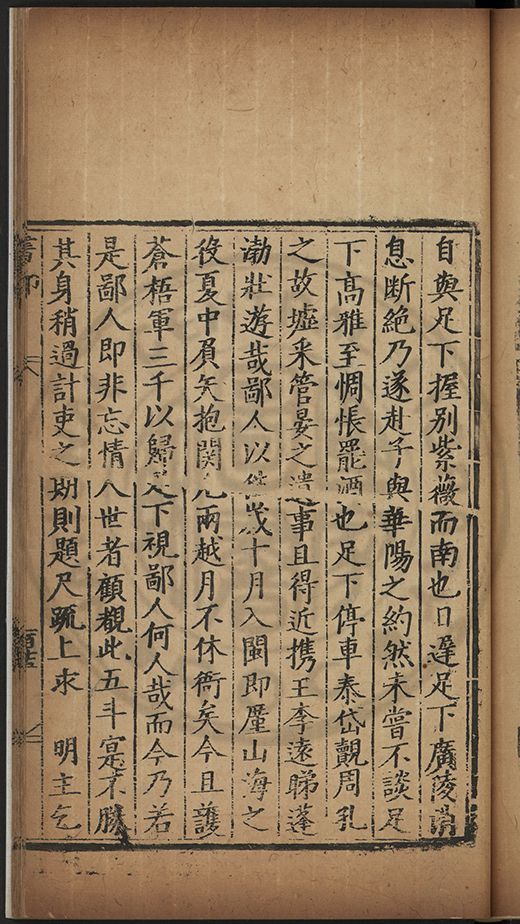 自與足下握別紫薇而南也日遲足下廣陵消
息断絶乃遂赴子與華陽之約然未嘗不談足
下髙雅至惆悵罷酒也足下停車泰岱覿周孔
之故墟采管晏之遺事且得近携王李遠睇蓬
渤壯遊哉鄙人以歲十月入閩即厪山海之
役夏中負矢抱関凡兩越月不休衙矣今且護
蒼梧軍三千以歸足下視鄙人何人哉而今乃若
是鄙人即非忘情人世者顧覩此五斗寔不勝
其身稍過計吏之期則題尺疏上求　明主乞